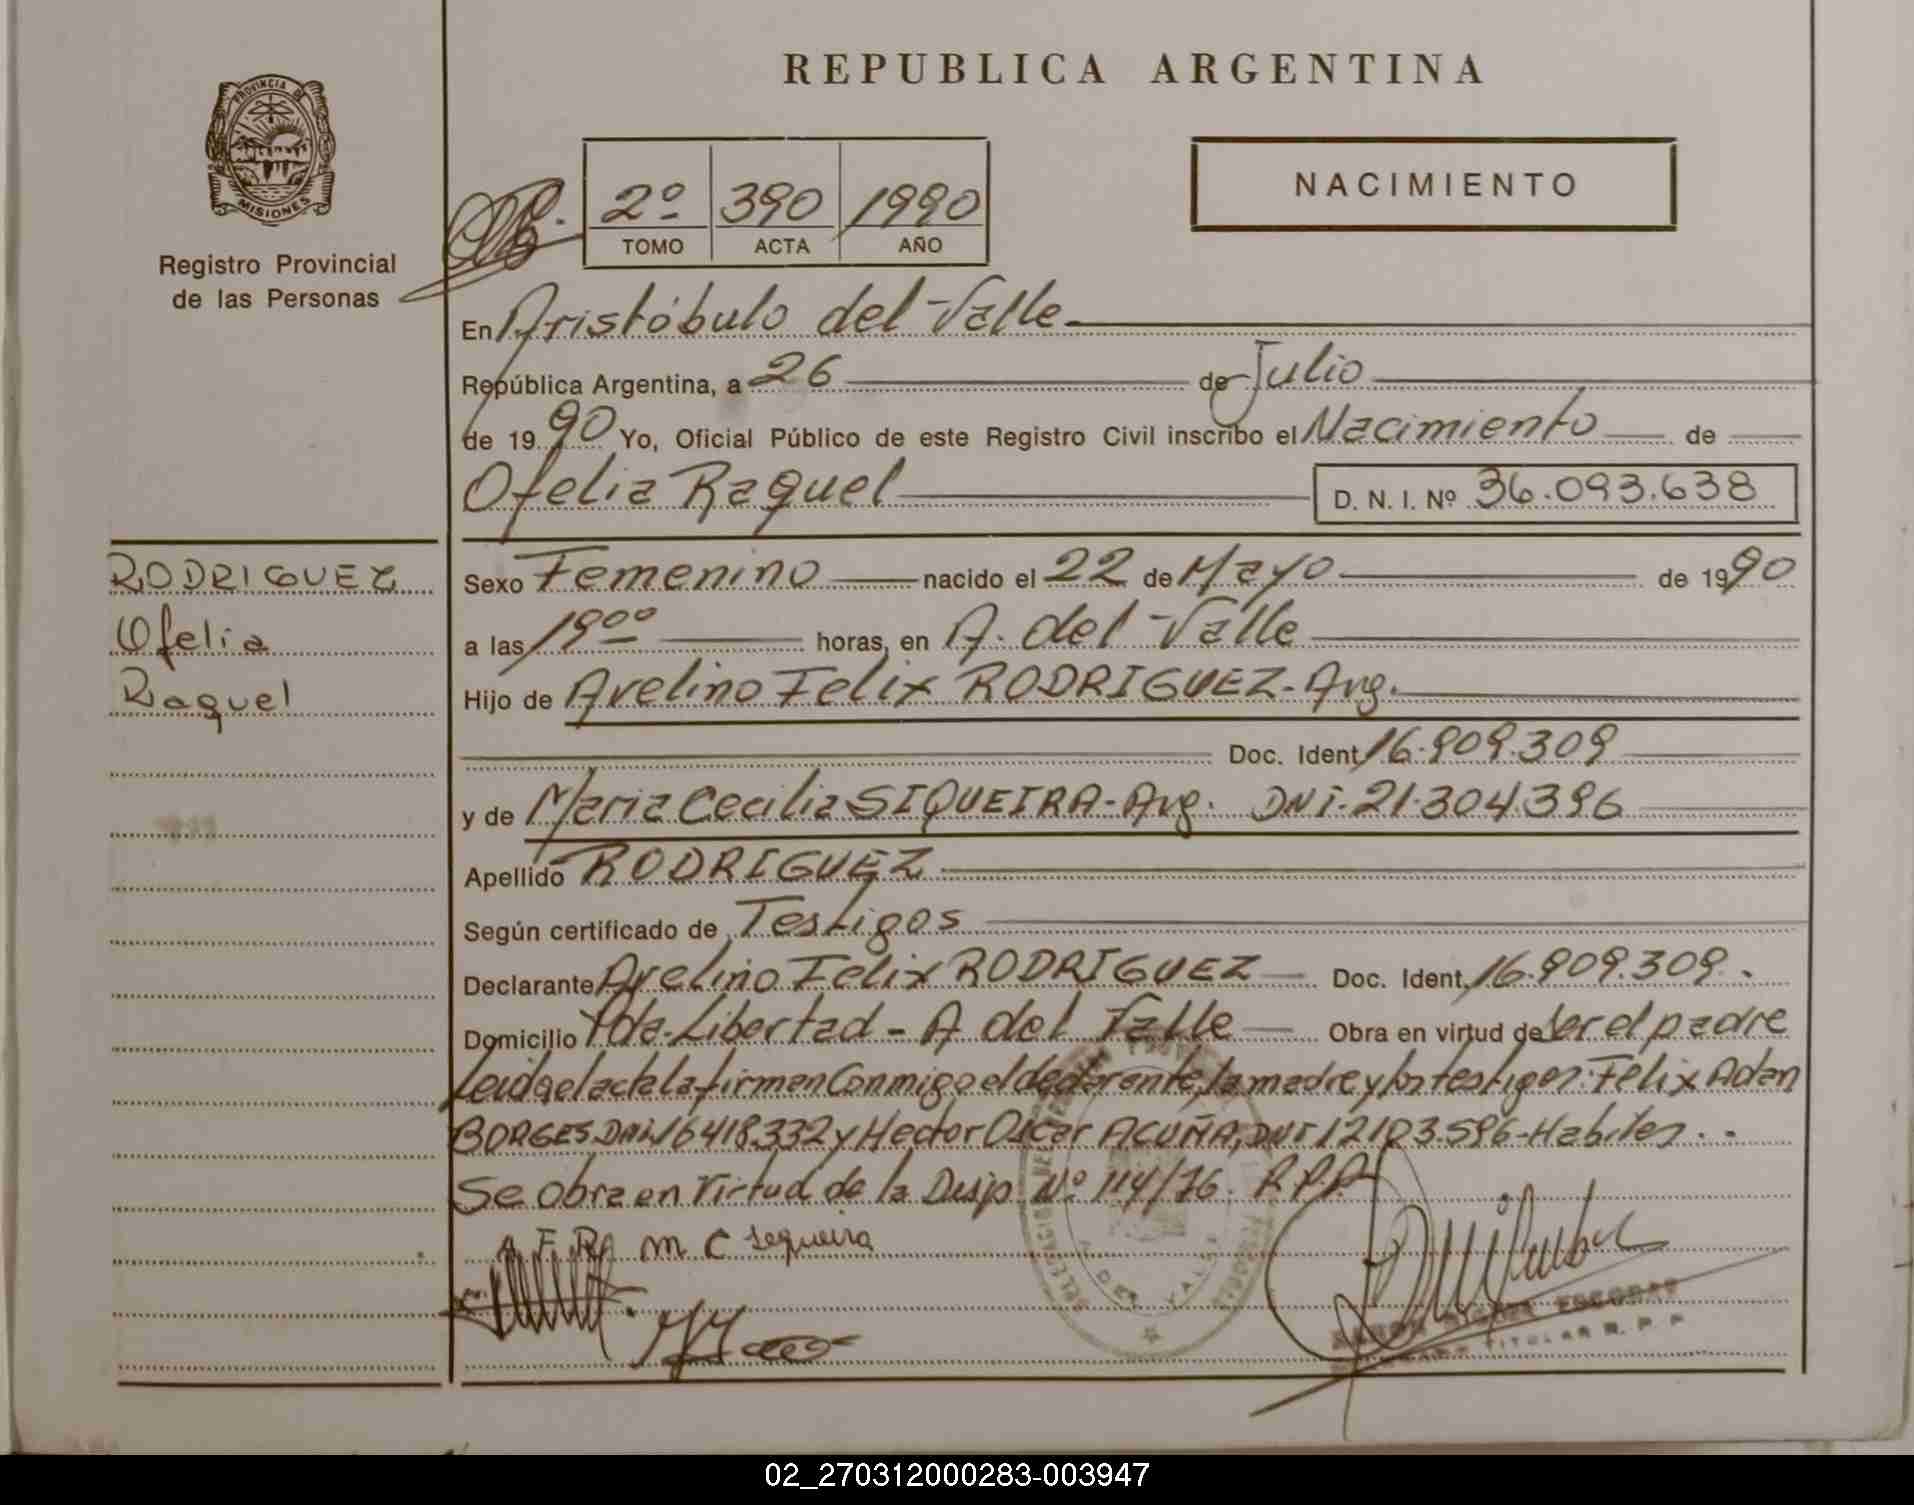 REPUBLICA ARGENTINA
PROVINCIA DE
MISIONES
Registro Provincial
de las Personas
2º 390 1990
TOMO ACTA AÑO
NACIMIENTO
En Aristóbulo del Valle
República Argentina, a 26 de Julio
de 1990 Yo, Oficial Público de este Registro Civil inscribo el Nacimiento de
Ofelia Raquel D. N. I. Nº 36.093.638
RODRIGUEZ
Ofelia
Raquel
Sexo Femenino nacido el 22 de Mayo de 1990
a las 19ºº horas, en A. del Valle
Hijo de Avelino Felix RODRIGUEZ-Arg.
Doc. Ident. 16.909.309
y de Maria Cecilia SIQUEIRA-Arg. DNI-21.304.396
Apellido RODRIGUEZ
Según certificado de Testigos
Declarante Avelino Felix RODRIGUEZ Doc. Ident. 16.909.309.
Domicilio Pda-Libertad-A del Valle Obra en virtud de Ser el padre
Leida el acta la firman Conmigo el declarante, la madre y los testigos: Felix Adan
BORGES DNI.16418.332 y Hector Oscar ACUÑA, DNI 12103.596-Habiles..
Se obra en Virtud de la Disp. Nº 114/76. R.P.P.
A F RA m c sequeira
A. DEL VALLE
ESCOBAR
TITULAR R. P. P.
02_270312000283-003947